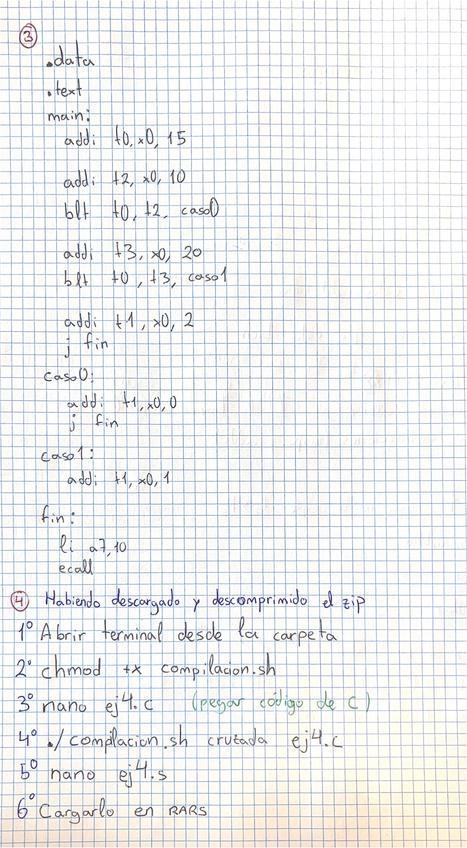 3
.data
.text
main:
addi t0, x0, 15
addi t2, x0, 10
blt t0, t2, caso0
addi t3, x0, 20
blt t0, t3, caso1
addi t1, x0, 2
j fin
caso0:
addi t1, x0, 0
j fin
caso1:
addi t1, x0, 1
fin:
li a7, 10
ecall
4 Habiendo descargado y descomprimido el zip
1º Abrir terminal desde la carpeta
2º chmod +x compilacion.sh
3º nano ej4.c (pegar código de C)
4º ./compilacion.sh cruzada ej4.c
5º nano ej4.s
6º Cargarlo en RARS